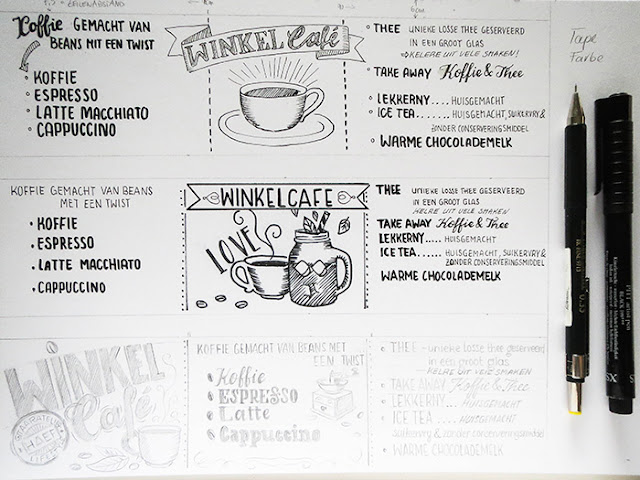 1,5 ZEILENABSTAND
6cm
Koffie GEMACHT VAN
BEANS MIT EEN TWIST
KOFFIE
ESPRESSO
LATTE MACCHIATO
CAPPUCCINO
WINKEL Café
THEE UNIEKE LOSSE THEE GESERVEERD
IN EEN GROOT GLAS
KELRE UIT VELE SMAKEN!
TAKE AWAY Koffie & Thee
LEKKERNY.... HUISGEMACHT
ICE TEA....... HUISGEMACHT, SUIKERVRY &
ZONDER CONSERVERINGSMIDDEL
WARME CHOCOLADEMELK
Tape
Farbe
KOFFIE GEMACHT VAN BEANS
MET EEN TWIST
KOFFIE
ESPRESSO
LATTE MACCHIATO
CAPPUCCINO
WINKELCAFE
LOVE
THEE UNIEKE LOSSE THEE GESERVEERD
IN EEN GROOT GLAS
KELRE UIT VELE SMAKEN
TAKE AWAY Koffie & Thee
LEKKERNY..... HUISGEMACHT
ICE TEA...... HUISGEMACHT, SUIKERVRY &
ZONDER CONSERVERINGSMIDDEL
WARME CHOCOLADEMELK
WINKEL
Café
KOFFIE GEMACHT VAN BEANS MET
EEN TWIST
Koffie
ESPRESSO
Latte
Cappuccino
THEE - unieke losse thee geserveerd
in een groot glas
KELRE UIT VELE SMAKEN
TAKE AWAY Koffie & Thee
LEKKERNY.... HUISGEMACHT
ICE TEA.... HUISGEMACHT
suikervry & zonder conserveringsmiddel
WARME CHOCOLADEMELK